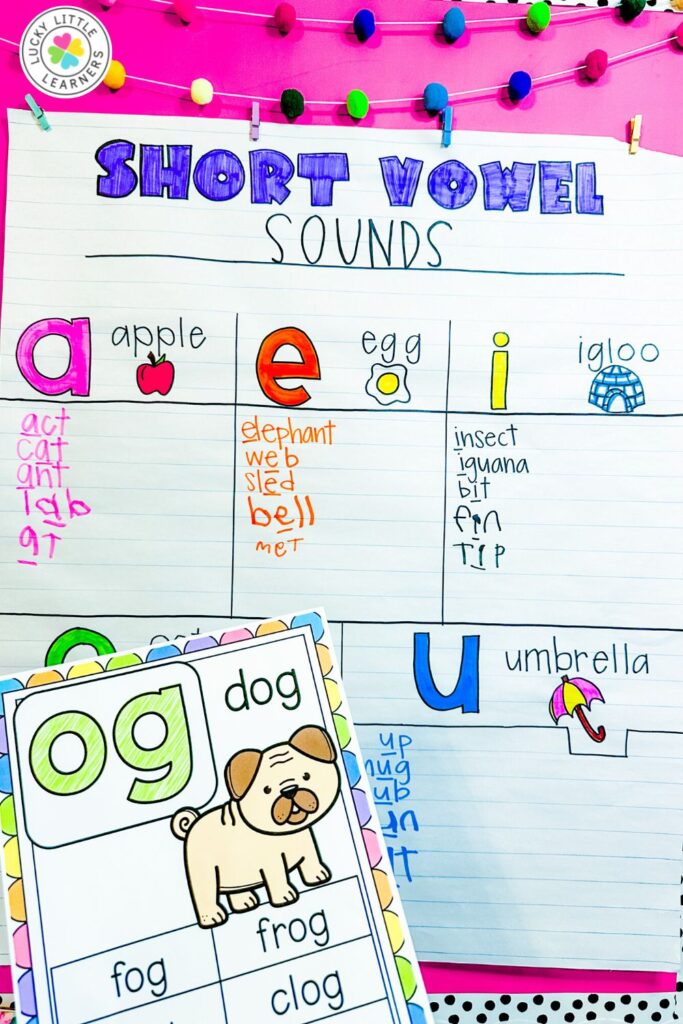 LUCKY LITTLE LEARNERS
SHORT VOWEL
SOUNDS
a apple
act
cat
ant
lab
at
e egg
elephant
web
sled
bell
met
i igloo
insect
iguana
bit
fin
tip
u umbrella
up
og
dog
frog
fog
clog